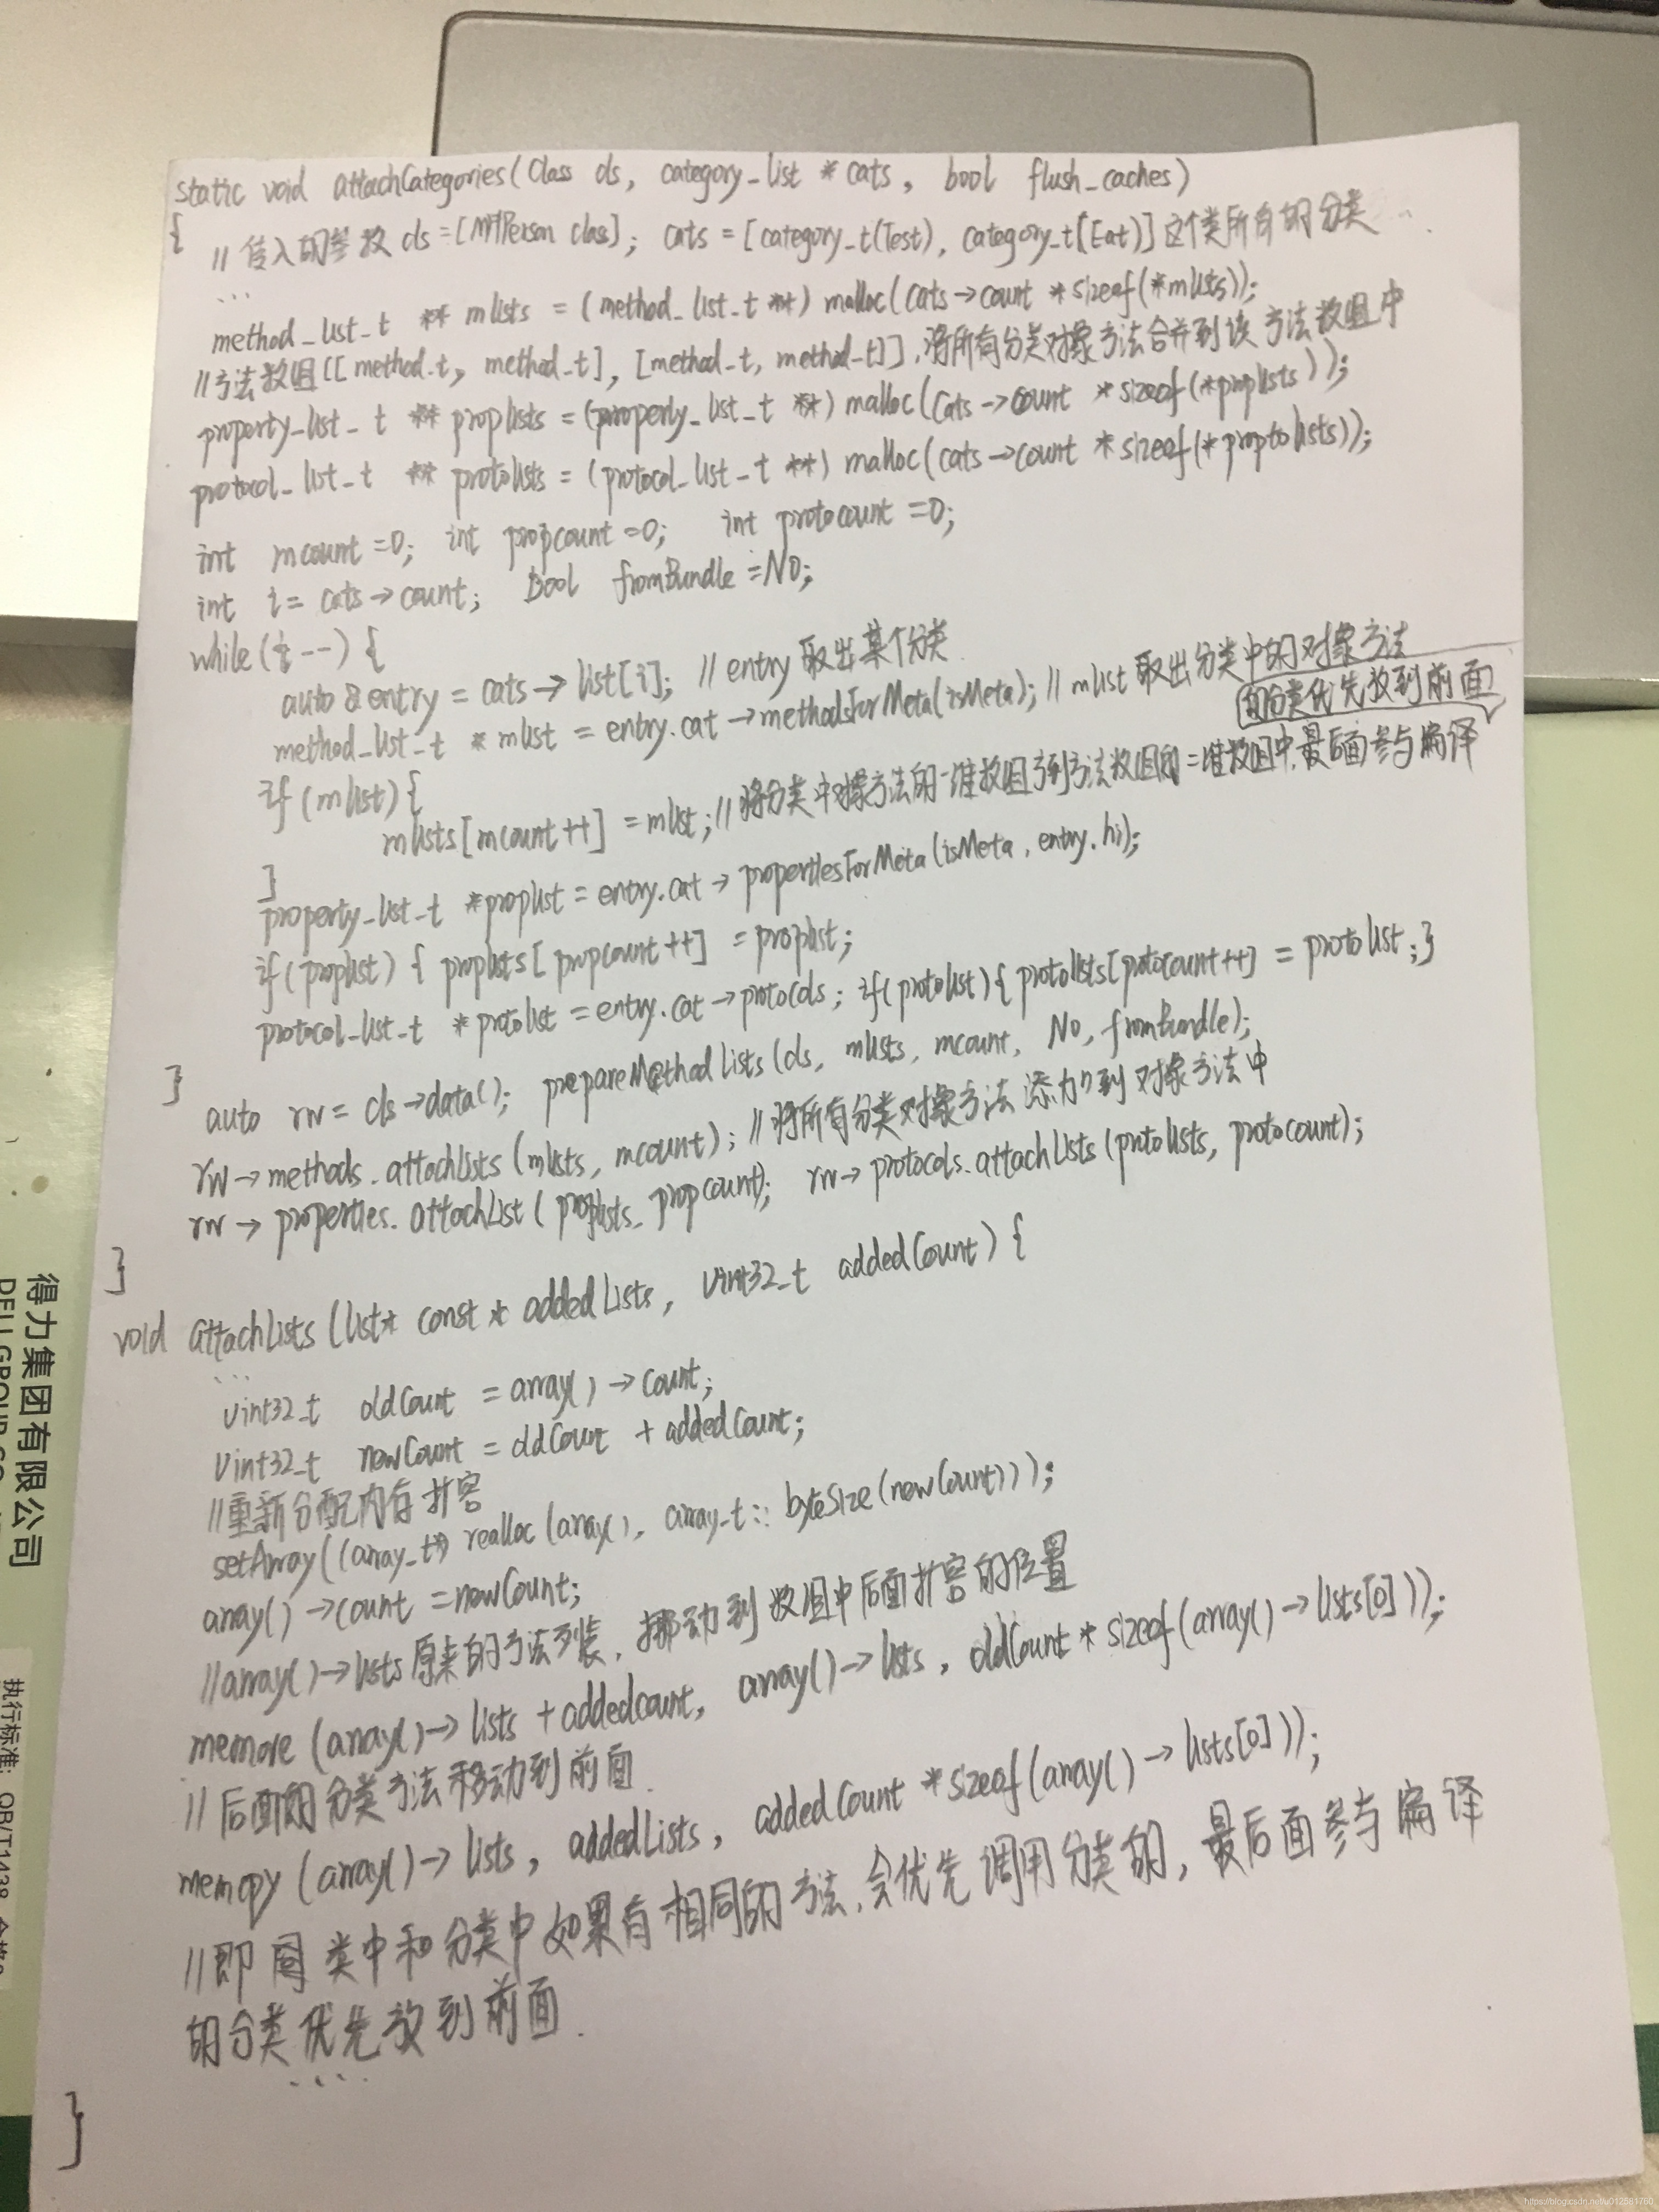 static void attachCategories(Class cls, category_list * cats, bool flush_caches)
{
// 传入的参数 cls = [MJPerson class]; cats = [category_t(Test), category_t[Eat)] 这个类所有的分类
...
method_list_t ** mlists = (method_list_t **) malloc(cats→count * sizeof(*mlists));
//方法数组[[method_t, method_t], [method_t, method_t]],将所有分类对象方法合并到该方法数组中
property_list_t ** proplists = (property_list_t **) malloc(cats→count * sizeof(*proplists));
protocol_list_t ** protolists = (protocol_list_t **) malloc(cats→count * sizeof(*proptolists));
int mcount =0; int propcount =0; int protocount =0;
int i= cats→count; Bool fromBundle =NO;
while(i--) {
auto & entry = cats→list[i]; // entry 取出某个分类
method_list_t * mlist = entry.cat→methodsForMeta(isMeta); // mlist 取出分类中的对象方法
的分类优先放到前面
if (mlist) {
mlists[mcount++] = mlist; //将分类中对象方法的一维数组 到方法数组的二维数组中,最后面参与编译
}
property_list_t *proplist = entry.cat→propertiesForMeta(isMeta, entry.hi);
if(proplist) { proplists[propcount++] = proplist;
protocol_list_t *protolist = entry.cat→protocols; if(protolist) { protolists[protocount++] = protolist; }
}
auto rw = cls→data(); prepareMethodLists(cls, mlists, mcount, NO, fromBundle);
rw→methods.attachLists(mlists, mcount); //将所有分类对象方法添加到对象方法中
rw→properties.attachList(proplists, propcount); rw→protocols.attachLists(protolists, protocount);
}
void attachLists(list* const * addedLists, uint32_t addedCount) {
...
uint32_t oldCount = array()→count;
uint32_t newCount = oldCount + addedCount;
//重新分配内存扩容
setArray((array_t*) realloc(array(), array_t::byteSize(newCount)));
array()→count = newCount;
//array()→lists原来的方法列表,挪动到数组中后面扩容的位置
memove (array()→lists +addedcount, array()→lists, oldCount * sizeof(array()→lists[0]));
//后面的分类方法移动到前面.
memcpy (array()→lists, addedLists, addedCount *sizeof(array()→lists[0]));
//即 类中和分类中如果有相同的方法,会优先调用分类的,最后面参与编译
的分类优先放到前面.
....
}
得力集团有限公司
DELI GROUP CO
执行标准: QB/T1438
https://blog.csdn.net/u012581760